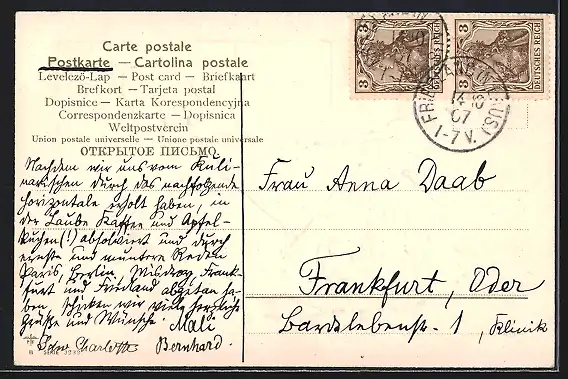 Carte postale
Postkarte — Cartolina postale
Levelező-Lap — Post card — Briefkaart
Brefkort — Tarjeta postal
Dopisnice — Karta Korespondencyjna
Correspondenzkarte — Dopisnica
Weltpostverein
Union postale universelle — Unione postale universale
ОТКРЫТОЕ ПИСЬМО
3
DEUTSCHES REICH
3
DEUTSCHES REICH
14 10
07
1-7 V.
Nachdem wir uns vom Kuli-
narischen durch das nachfolgende
horizontale erholt haben, in
der Laube Kaffee und Apfel-
kuchen (!) absolviert und durch
ernste und muntere Reden
Paris, Berlin, Misdroy, Frank-
furt und Friedland abgetan ha-
ben schicken wir viele herzliche
Grüße und Wünsche. Mali
Charlotte Bernhard.
Frau Anna Daab
Frankfurt, Oder
Bardelebenstr. 1, Klinik